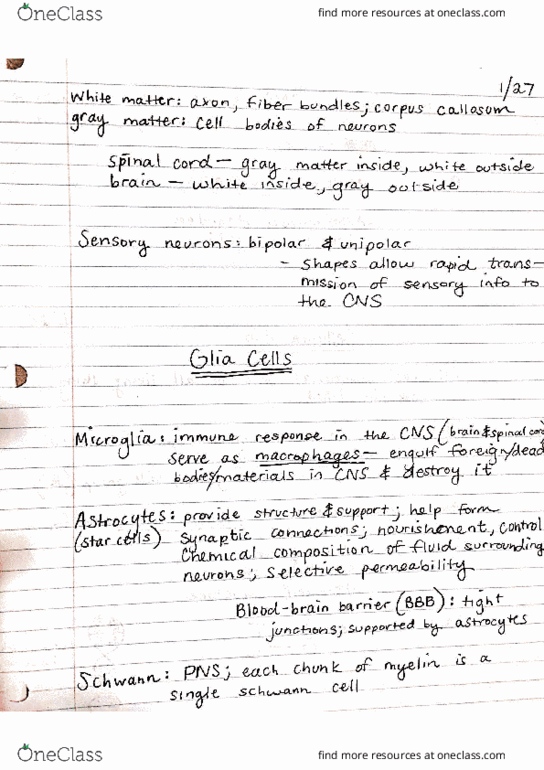 OneClass
find more resources at oneclass.com
1/27
White matter: axon, fiber bundles; corpus callosum
gray matter: cell bodies of neurons
spinal cord — gray matter inside, white outside
brain — white inside, gray outside
Sensory neurons: bipolar & unipolar
- shapes allow rapid trans-
mission of sensory info to
the CNS
Glia Cells
Microglia: immune response in the CNS (brain & spinal cord)
serve as macrophages — engulf foreign/dead
bodies/materials in CNS & destroy it
Astrocytes: provide structure & support; help form
(star cells) synaptic connections; nourishment, control
chemical composition of fluid surrounding
neurons; selective permeability
Blood-brain barrier (BBB): tight
junctions; supported by astrocytes
Schwann: PNS; each chunk of myelin is a
single schwann cell
OneClass
find more resources at oneclass.com